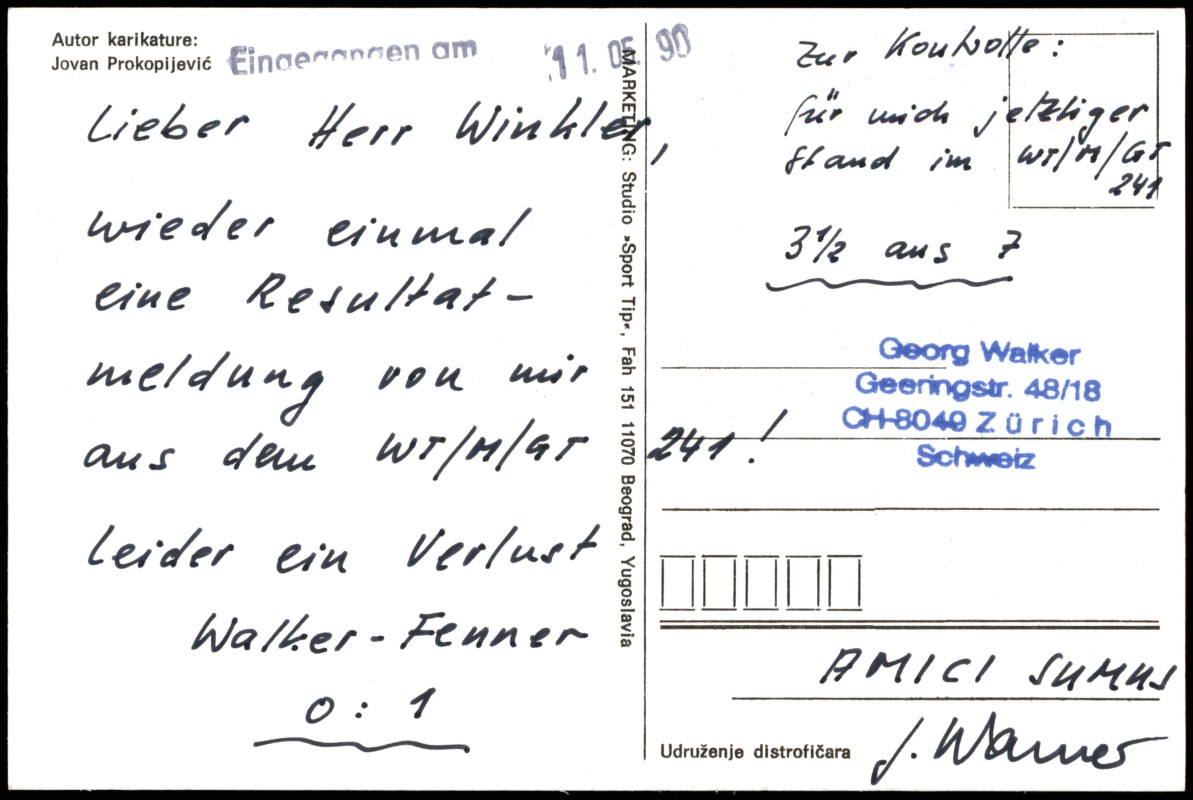 Autor karikature:
Jovan Prokopijević
Eingegangen am 11.05.90
Lieber Herr Winkler,
wieder einmal
eine Resultat-
meldung von mir
aus dem WT/M/GT 241!
Leider ein Verlust
Walker-Fenner
0:1
MARKETING: Studio »Sport Tip«, Fah 151 11070 Beograd, Yugoslavia
Zur Kontrolle:
für mich jetztiger
Stand im WT/M/GT
241
3 1/2 aus 7
Georg Walker
Geeringstr. 48/18
CH-8049 Zürich
Schweiz
AMICI SUMUS
Udruženje distrofičara